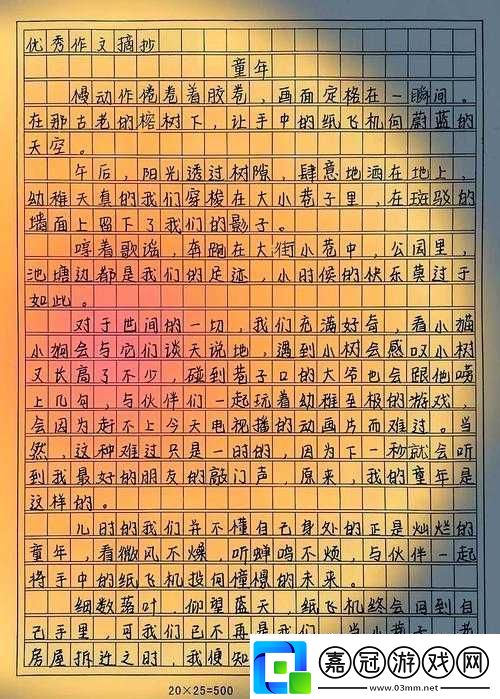 优秀作文摘抄
童年
慢动作倦卷着胶卷，画面定格在一瞬间。
在那古老的榕树下，让手中的纸飞机向蔚蓝的
天空。
午后，阳光透过树隙，肆意地洒在地上，
幼稚天真的我们穿梭在大小巷子里，在斑驳的
墙面上留下了我们的影子。
哼着歌谣，奔跑在大街小巷中，公园里，
池塘边都是我们的足迹，小时候的快乐莫过于
如此。
对于世间的一切，我们充满好奇，看小猫
小狗会与它们谈天说地，遇到小树会感叹小树
又长高了不少，碰到巷子口的大爷也会跟他唠
上几句，与伙伴们一起玩着幼稚至极的游戏，
会因为赶不上今天电视播的动画片而难过。当
然，这种难过只是一时的，因为下一秒就会听
到我最好的朋友的敲门声，原来，我的童年是
这样的。
儿时的我们并不懂自己身处的正是灿烂的
童年，看微风不燥，听蝉鸣不烦，与伙伴一起
将手中的纸飞机投向憧憬的未来。
细数落叶，仰望蓝天，纸飞机终会回到自
己手里，可我们已不再是我们，当小巷子、老
房屋拆迁之时，我便知
20×25=500
嘉冠游戏网
www.03mm.net